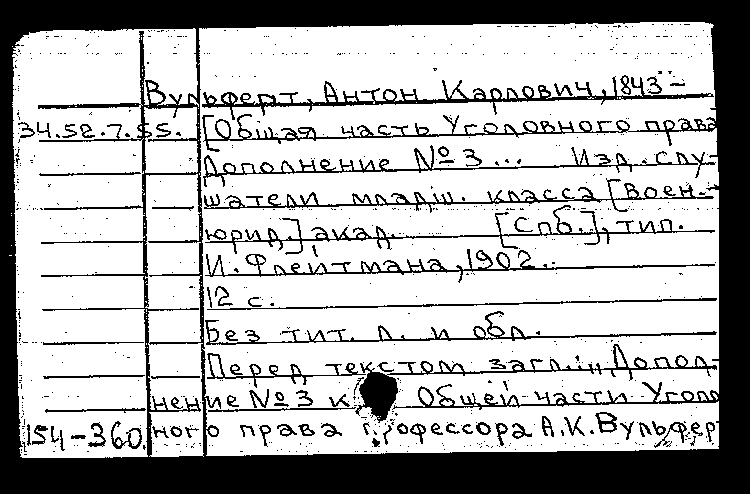 Вульферт, Антон Карлович, 1843 -
34.52.7.55. [Общая часть Уголовного права
Дополнение № 3 ... Изд. слу-
шатели младш. класса [Воен.-
юрид.] акад. [Спб.], тип.
И. Флейтмана, 1902.
12 с.
Без тит. л. и обл.
Перед текстом загл.: "Допол-
нение № 3 к Общей части Уголо
154-360. ного права профессора А.К. Вульферт